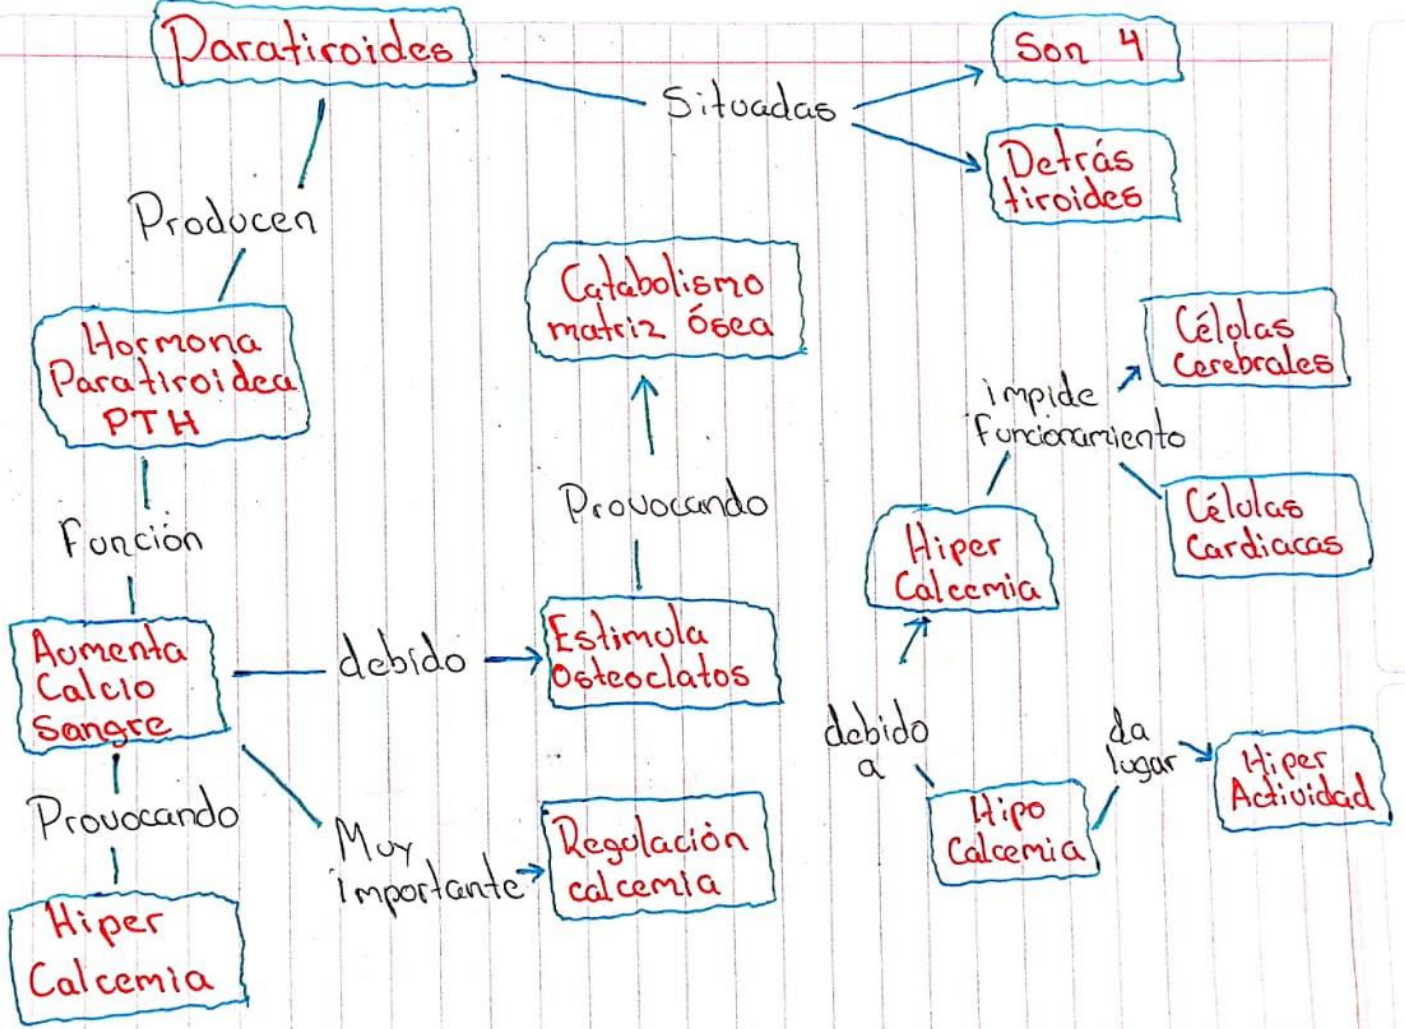 Paratiroides
Situadas
Son 4
Detrás
tiroides
Producen
Hormona
Paratiroidea
PTH
Función
Aumenta
Calcio
Sangre
Provocando
Hiper
Calcemia
debido
Estimula
Osteoclatos
Provocando
Catabolismo
matriz Ósea
Muy
importante
Regulación
calcemia
Hiper
Calcemia
impide
funcionamiento
Células
Cerebrales
Células
Cardiacas
debido
a
Hipo
Calcemia
da
lugar
Hiper
Actividad